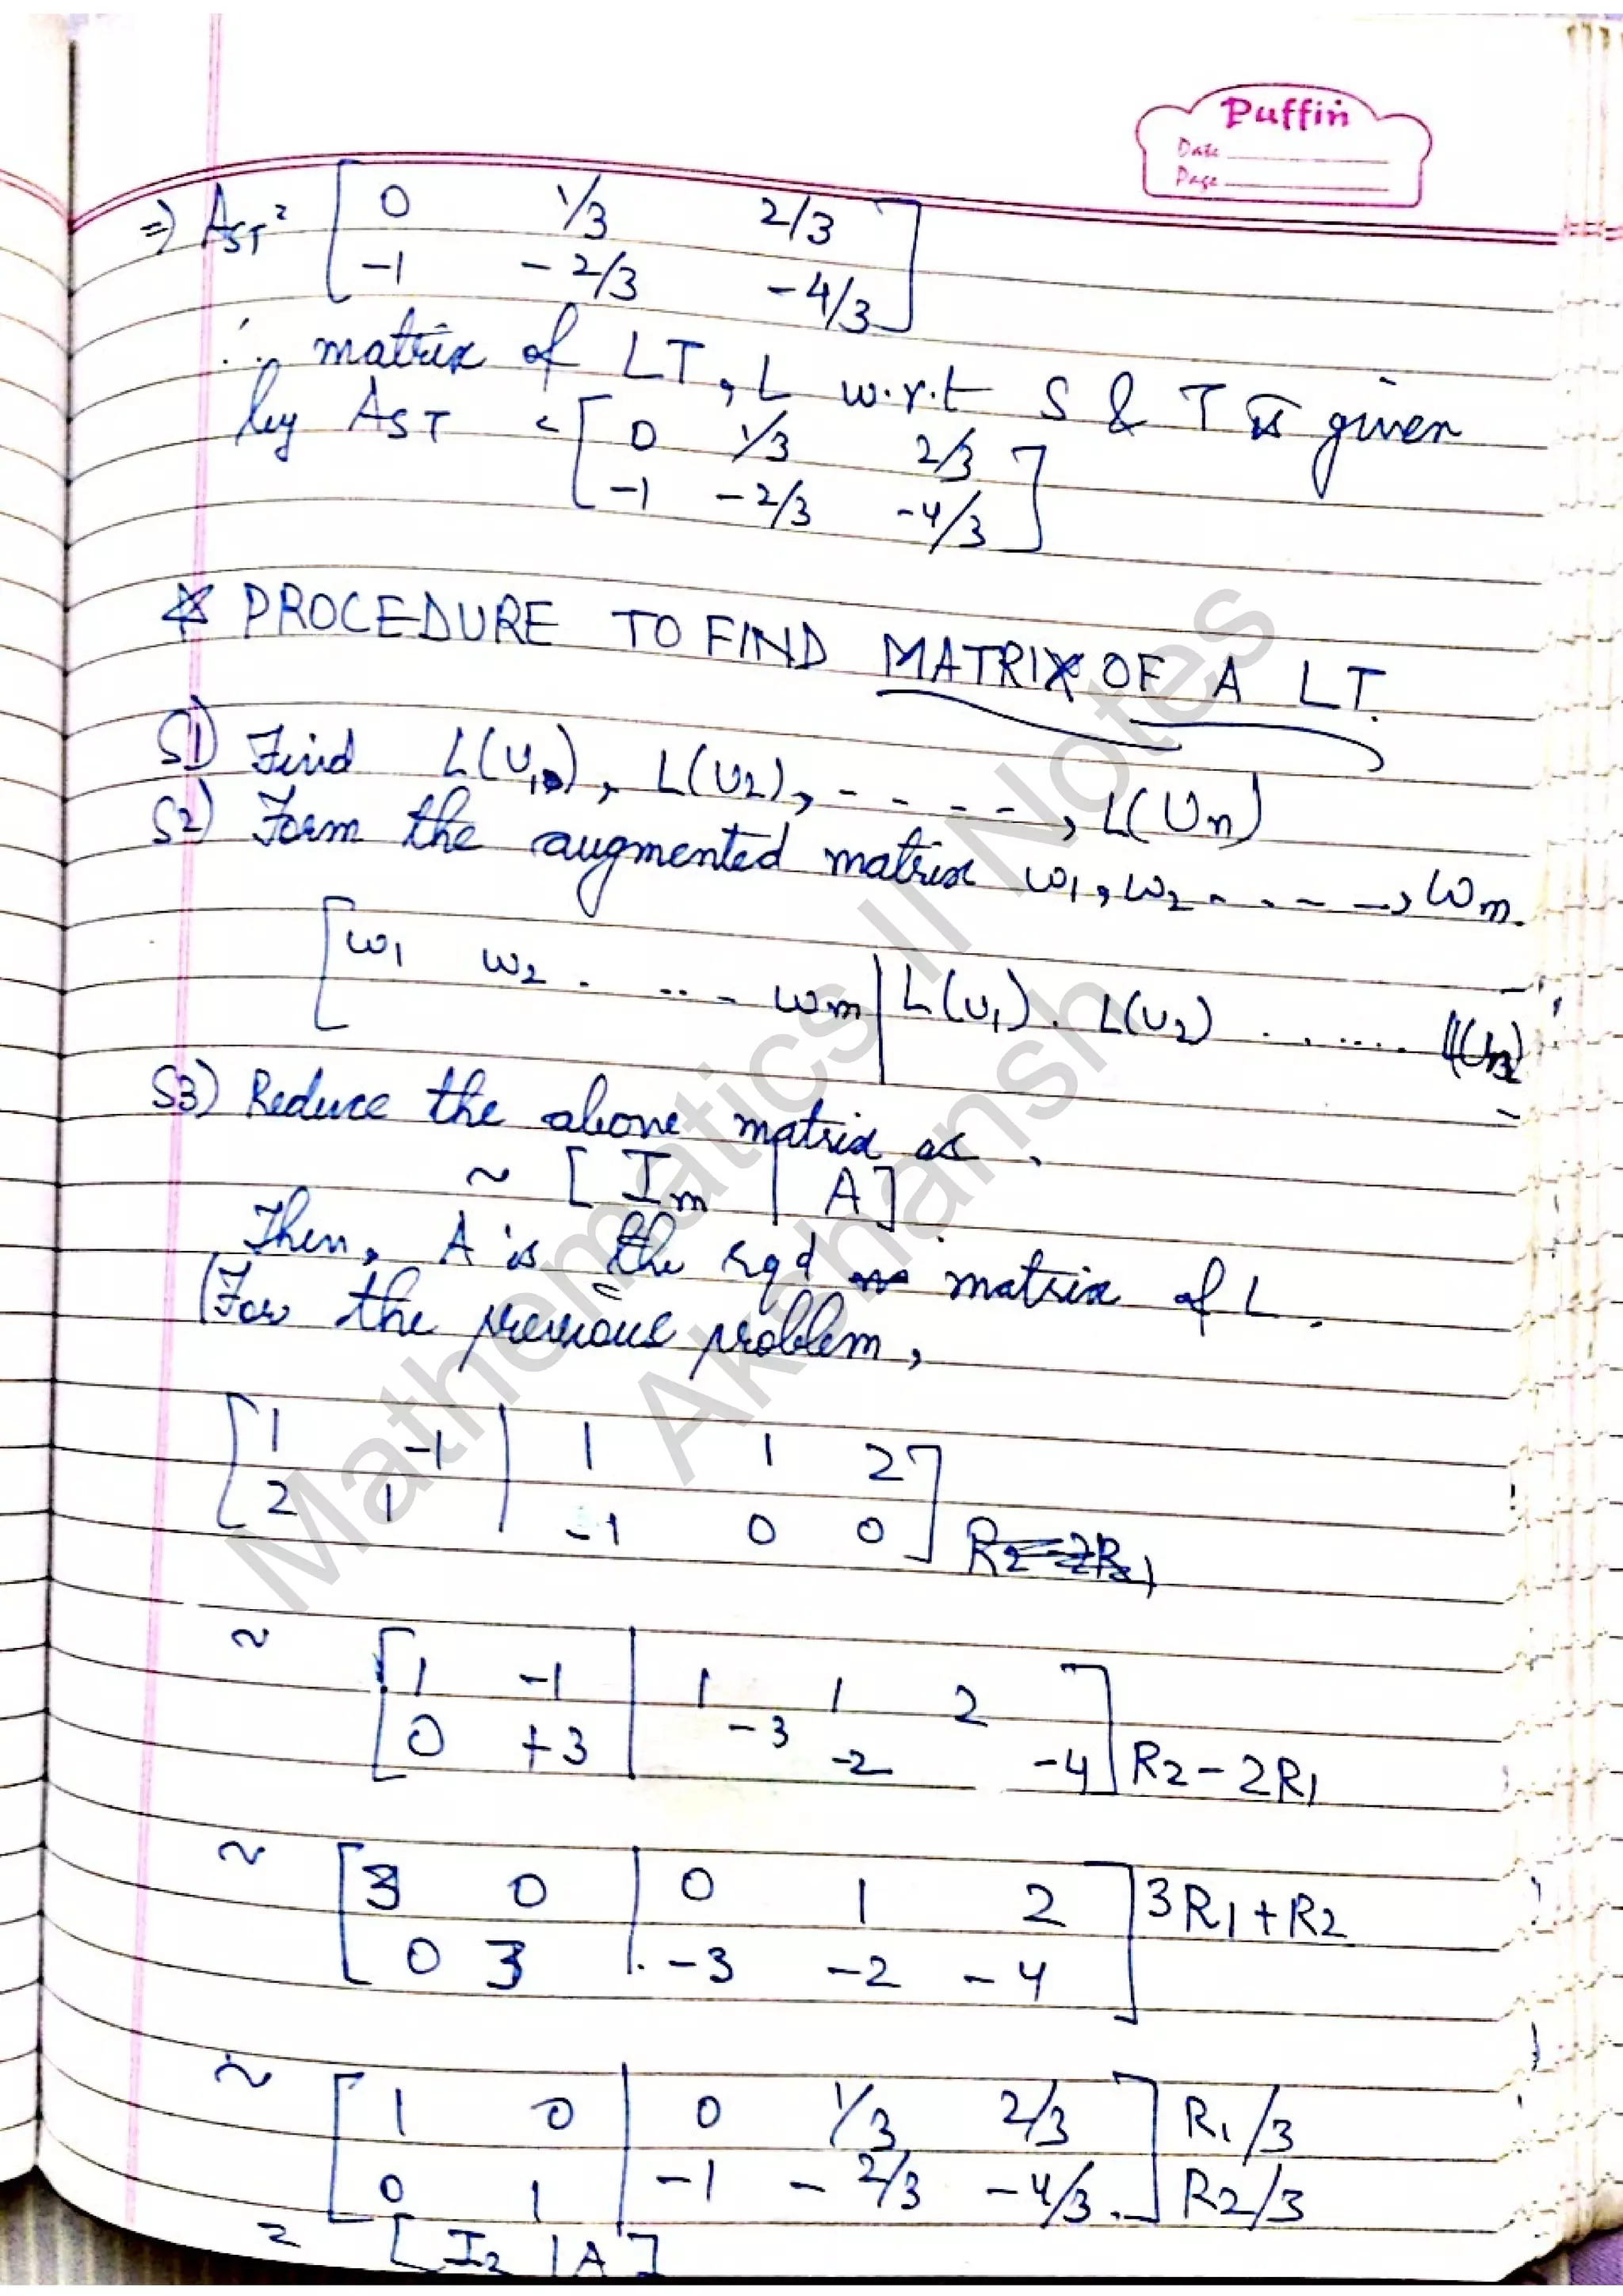 Puffin
Date
Page
=) AST = [ 0 1/3 2/3
-1 -2/3 -4/3 ]
∴ matrix of LT, L w.r.t S & T is given
by AST = [ 0 1/3 2/3
-1 -2/3 -4/3 ]
* PROCEDURE TO FIND MATRIX OF A LT.
S1) Find L(U1), L(U2), - - - - -, L(Un)
S2) Form the augmented matrix w1, w2 - - - - -, wm.
[ w1 w2 . .. - wm | L(U1) . L(U2) . ..... L(Un)
S3) Reduce the above matrix as .
~ [ Im | A ]
Then, A is the rqd matrix of L .
(For the previous problem,
[ 1 -1 | 1 1 2 ]
2 1 | -1 0 0 ] R2-2R1
~ [ 1 -1 | 1 1 2 ]
0 +3 | -3 -2 -4 ] R2-2R1
~ [ 3 0 | 0 1 2 ] 3R1+R2
0 3 | -3 -2 -4 ]
~ [ 1 0 | 0 1/3 2/3 ] R1/3
0 1 | -1 -2/3 -4/3 ] R2/3
= [ I2 | A ]
Mathematics II Notes
Akshansh